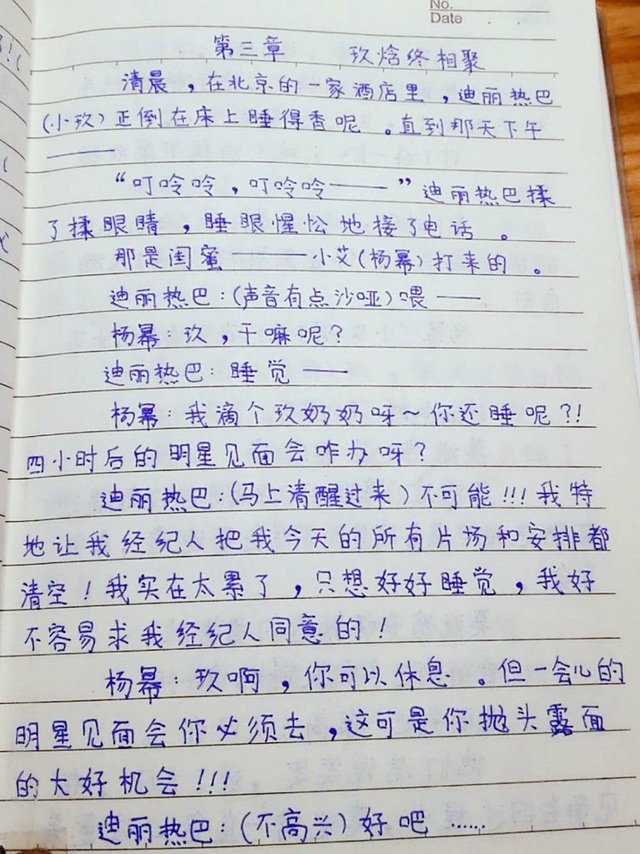 No.
Date
第三章 玖焓终相聚
清晨，在北京的一家酒店里，迪丽热巴
(小玖)正倒在床上睡得香呢。直到那天下午
——
“叮呤呤，叮呤呤——”迪丽热巴揉
了揉眼睛，睡眼惺忪地接了电话。
那是闺蜜——小艾(杨幂)打来的。
迪丽热巴：(声音有点沙哑)喂——
杨幂：玖，干嘛呢？
迪丽热巴：睡觉——
杨幂：我滴个玖奶奶呀～你还睡呢？！
四小时后的明星见面会咋办呀？
迪丽热巴：(马上清醒过来)不可能！！！我特
地让我经纪人把我今天的所有片场和安排都
清空！我实在太累了，只想好好睡觉，我好
不容易求我经纪人同意的！
杨幂：玖啊，你可以休息。但一会儿的
明星见面会你必须去，这可是你抛头露面
的大好机会！！！
迪丽热巴：(不高兴)好吧……